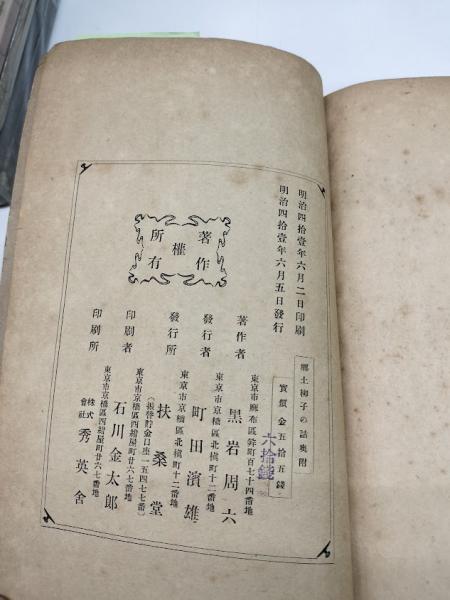 明治四拾壹年六月二日印刷
明治四拾壹年六月五日發行
郷土柳子の話奥附
實價金五拾五錢
六拾錢
著作
權
所有
東京市麻布區笄町百七十四番地
著作者 黒岩周六
東京市京橋區北槇町十二番地
發行者 町田濱雄
東京市京橋區北槇町十二番地
發行所 扶桑堂
(振替貯金口座一五四七七番)
東京市京橋區西紺屋町廿六七番地
印刷者 石川金太郎
東京市京橋區西紺屋町廿六七番地
印刷所 株式會社 秀英舍